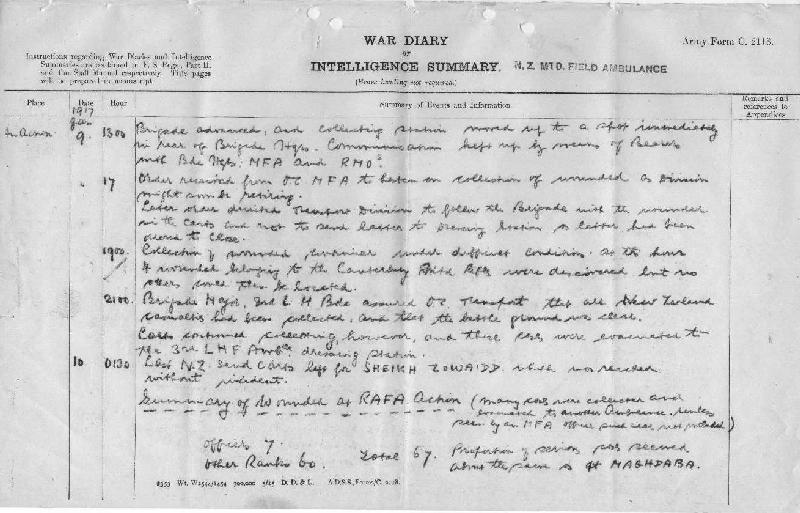 WAR DIARY
or
INTELLIGENCE SUMMARY.
Army Form C. 2118.
Instructions regarding War Diaries and Intelligence
Summaries are contained in F. S. Regs., Part II.
and the Staff Manual respectively. Title pages
will be prepared in manuscript.
N.Z. MTD. FIELD AMBULANCE
(Erase heading not required.)
Place
Date
Hour
Summary of Events and Information
Remarks and
references to
Appendices
1917
Jan
In Action
9. 1300 Brigade advanced, and collecting station moved up to a spot immediately
in rear of Brigade Hqrs. Communication kept up by means of Bearers
with Bde Hqrs, MFA and RMOs
17 Order received from O.C. MFA to hasten on collection of wounded as Division
might soon be retiring.
Later order directed Transport Division to follow the Brigade with the wounded
in the carts and not to send latter to Dressing Station as latter had been
ordered to close.
1900 Collection of wounded continued under difficult conditions. At this hour
4 wounded belonging to the Canterbury were discovered but no
others could then be located.
2100 Brigade Major, 3rd L H Bde assured O.C. Transport that all New Zealand
casualties had been collected, and that the battle ground was clear.
Carts continued collecting, however, and these cases were evacuated to
the 3rd LHF Ambce dressing station.
10 0130 Last N.Z. Sand Carts left for SHEIKH ZOWAIDD which was reached
without incident.
Summary of Wounded at RAFA Action (Many cases were collected and
evacuated to another Ambulance, unless
seen by an MFA officer such cases not included)
Officers 7.
Other Ranks 60. Total 67. Proportion of serious cases seemed
about the same as at MAGHDABA.
D. D. & L.